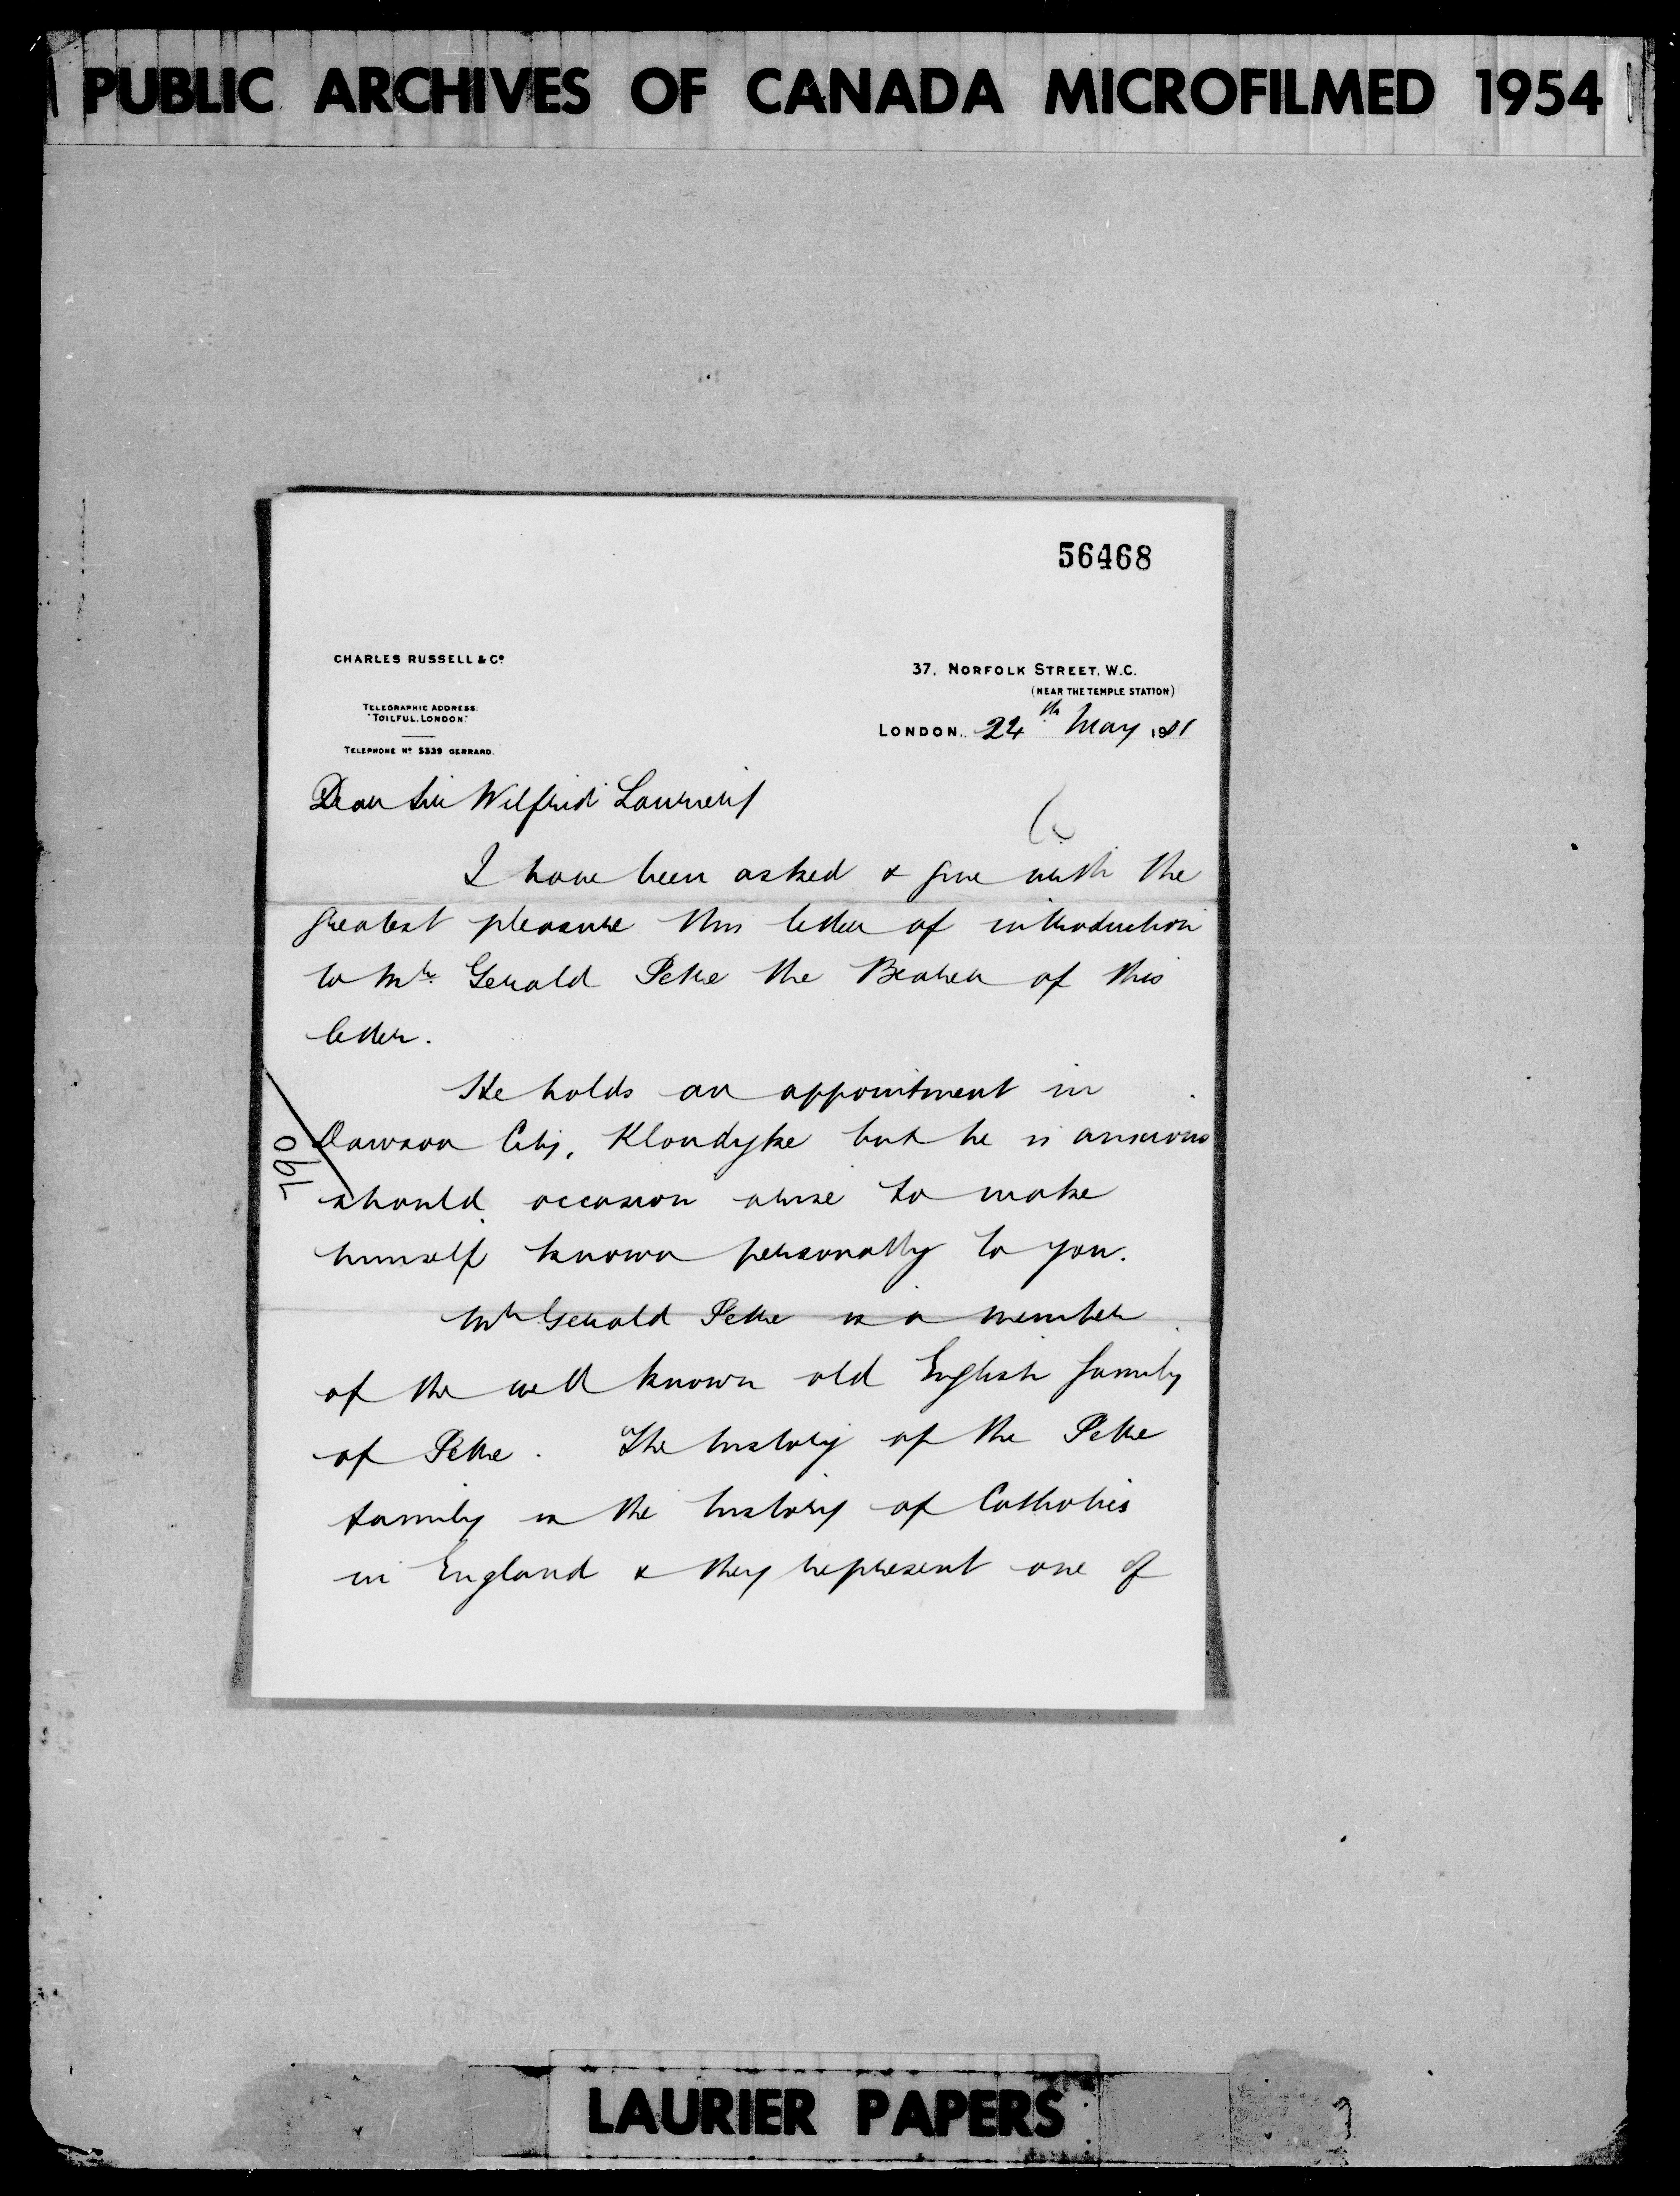 PUBLIC ARCHIVES OF CANADA MICROFILMED 1954
56468
CHARLES RUSSELL & Co.
TELEGRAPHIC ADDRESS.
"TOILFUL, LONDON."
TELEPHONE No. 5339 GERRARD.
37, NORFOLK STREET, W.C.
(NEAR THE TEMPLE STATION)
LONDON, 24th May 1901
Dear Sir Wilfrid Laurier
I have been asked & give with the
greatest pleasure this letter of introduction
to Mr. Gerald Petre the Bearer of this
letter.
He holds an appointment in
Dawson City, Klondyke but he is anxious
should occasion arise to make
himself known personally to you.
Mr Gerald Petre is a member
of the well known old English family
of Petre. The history of the Petre
family is the history of Catholics
in England & they represent one of
790
LAURIER PAPERS